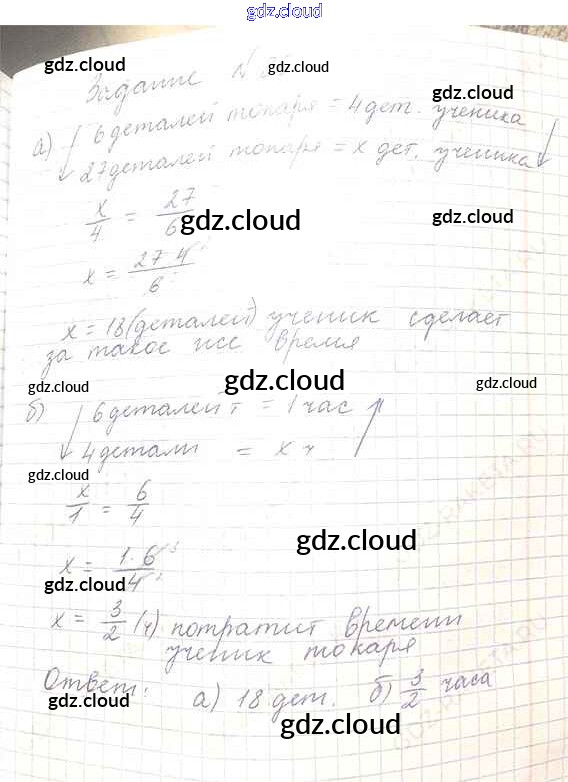 gdz.cloud
gdz.cloud
gdz.cloud
Задание N
а) 6 деталей токаря = 4 дет. ученика
gdz.cloud
gdz.cloud
27 деталей токаря = x дет. ученика
x/4 = 27/6
gdz.cloud
gdz.cloud
x = 27 4/6
x = 18 (деталей) ученик сделает
за такое же время
gdz.cloud
б) 6 деталей т = 1 час
gdz.cloud
4 детали = x ч
gdz.cloud
x/1 = 6/4
gdz.cloud
x = 1·6/4
gdz.cloud
x = 3/2 (ч) потратит времени
ученик токаря
Ответ: а) 18 дет. б) 3/2 часа
gdz.cloud
gdz.cloud